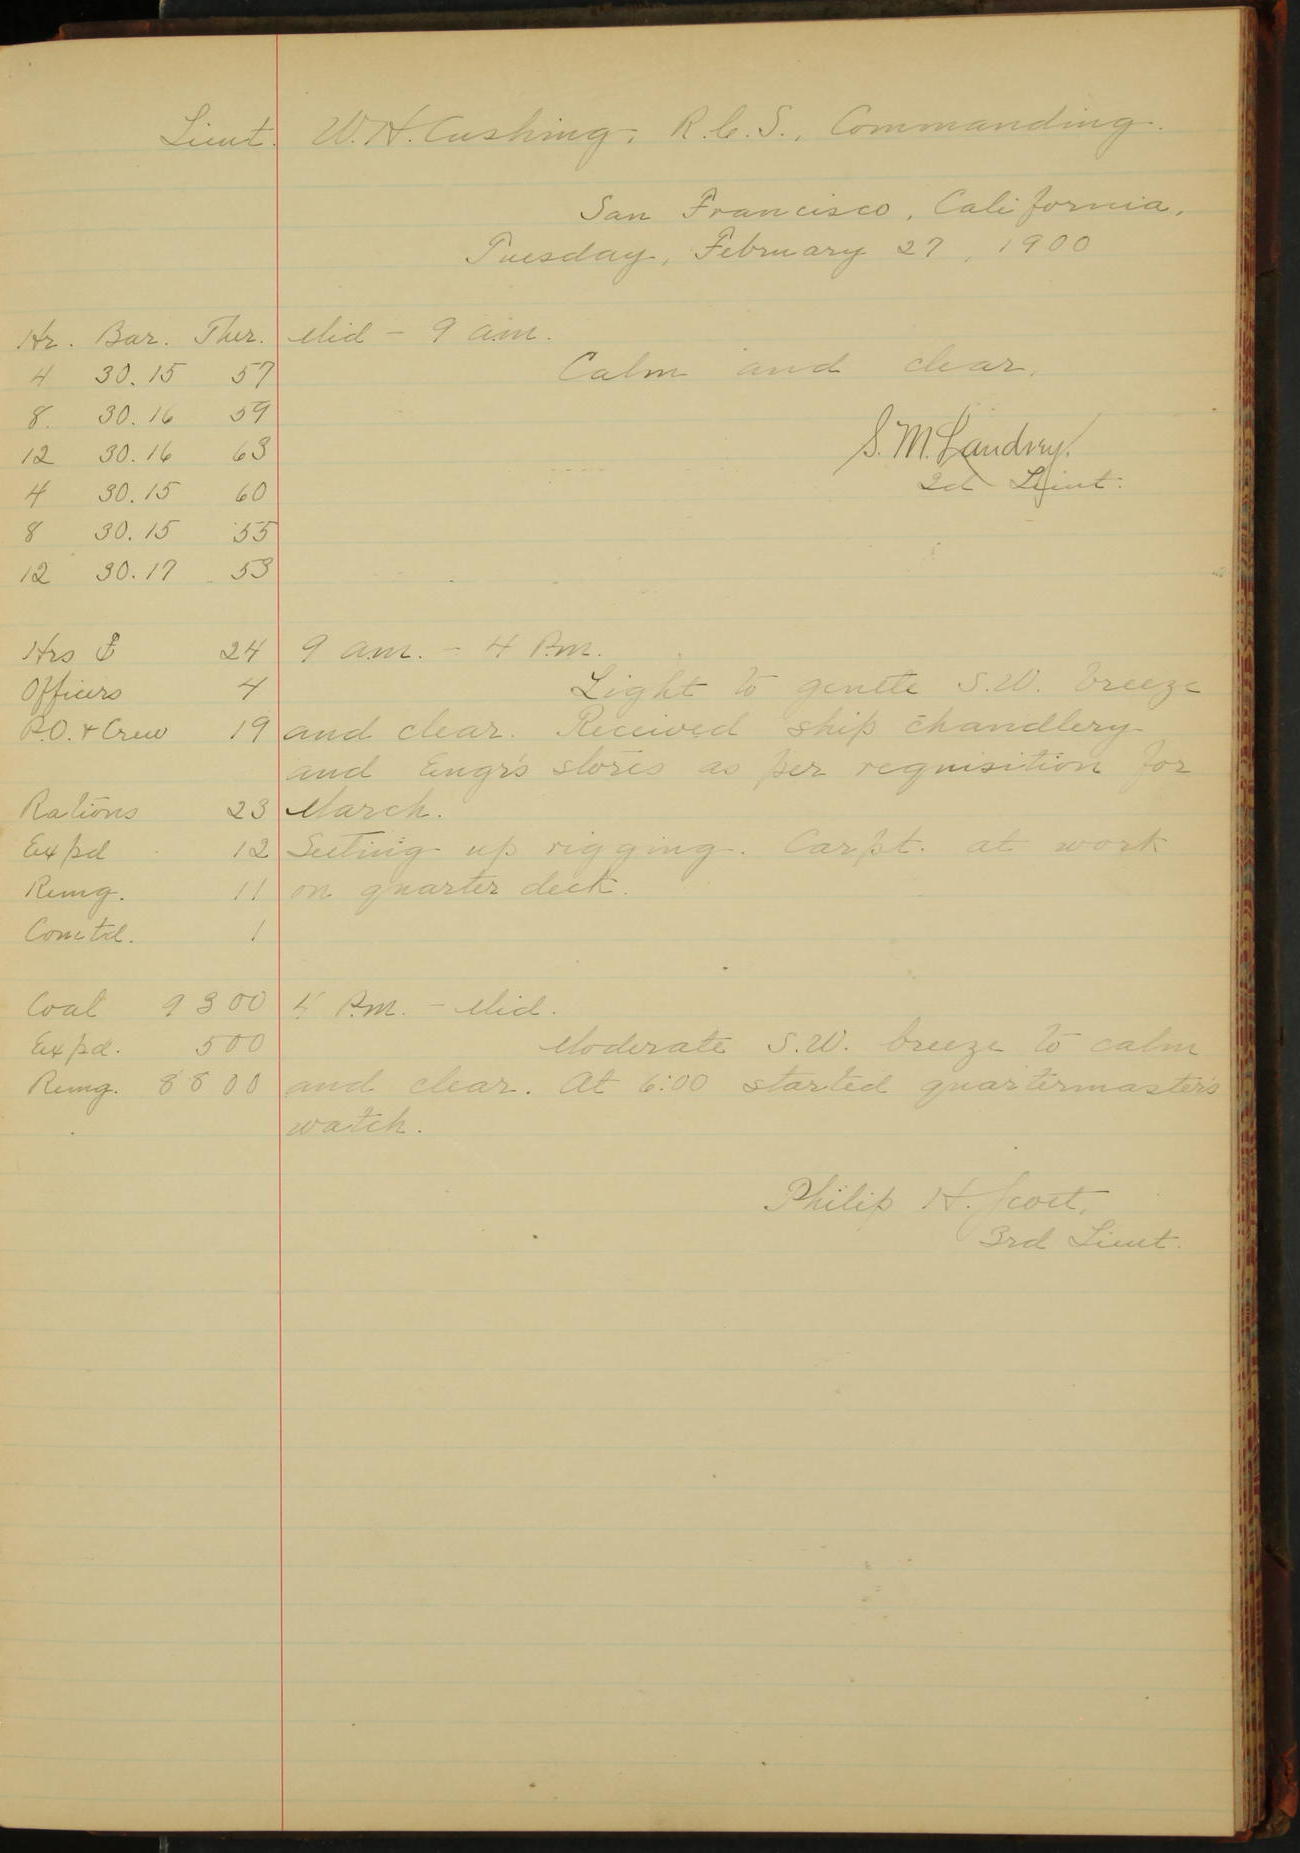 Lieut. W. H. Cushing, R.C.S., Commanding.
San Francisco, California,
Tuesday, February 27, 1900
Hr. Bar. Ther. Mid - 9 a.m.
4 30.15 57 Calm and clear.
8. 30.16 59
12 30.16 63 S. M. Landrey.
4 30.15 60 2d Lieut.
8 30.15 55
12 30.17 53
Hrs ⚓ 24 9 a.m. - 4 P.m.
Officers 4 Light to gentle S.W. breeze
P.O. & Crew 19 and clear. Received ship chandlery
and Engr's stores as per requisition for
Rations 23 March.
Expd 12 Setting up rigging. Carpt. at work
Remg. 11 on quarter deck.
Comtd. 1
Coal 9300 4 P.m. - Mid.
Expd. 500 Moderate S.W. breeze to calm
Remg. 8800 and clear. At 6:00 started quartermaster's
watch.
Philip H. Scott,
3rd Lieut.